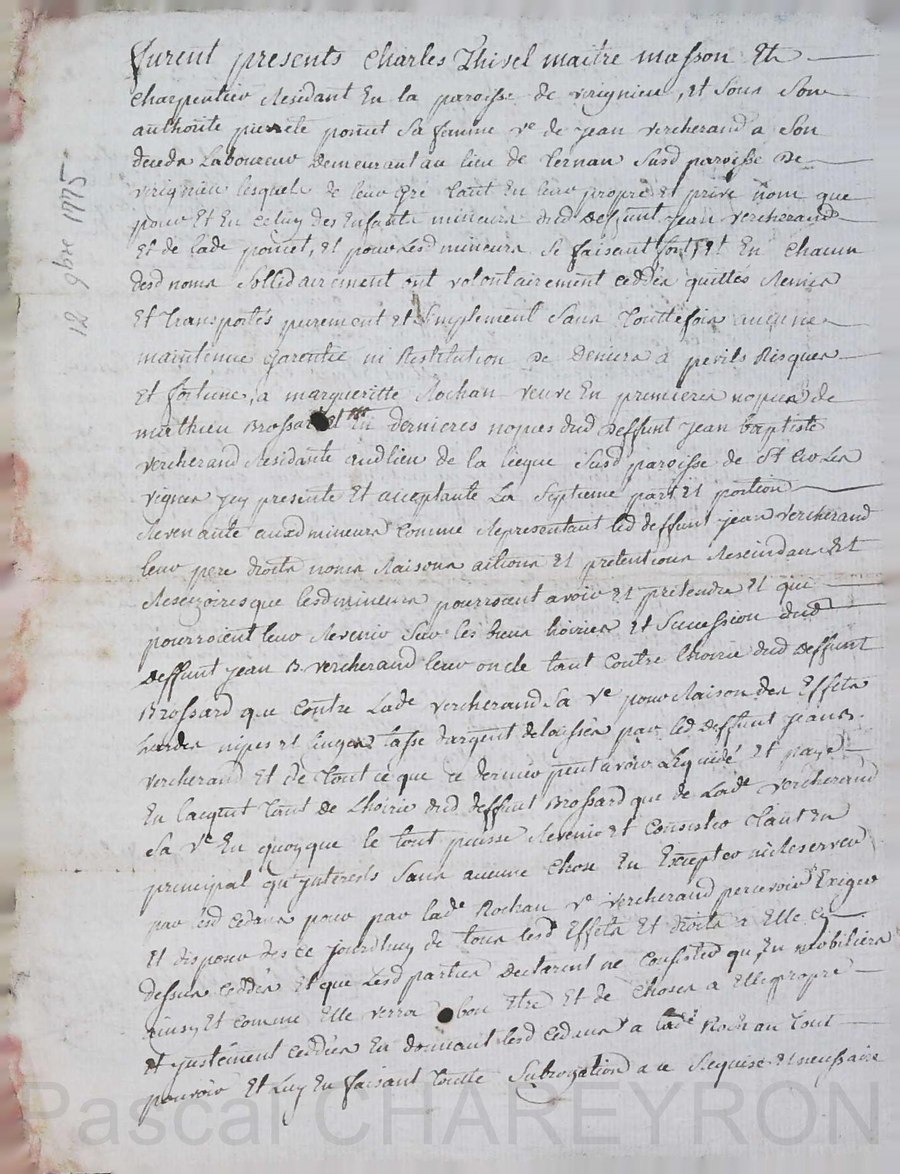 12 9bre 1775
furent presents Charles Thivel maitre masson Et
Charpentier Residant En la paroisse de virignieu, Et sous Son
authorité pierrete poncet Sa femme ve de jean vercherand a Son
deceds Laboureur demeurant au lieu de Ternan Susd paroisse de
virignieu lesquels de leur gré tant En leur propre et privé nom que
pour Et En Celuy des Enfants mineurs dud deffunt jean vercherand
Et de lade poncet, et pour Lesd mineurs Se faisant fort, Et En Chacun
desd noms Sollidairement ont volontairement ceddés quittés Remis
Et Transportés purement et Simplement Sans Touttefois aucune
maintenue Garentie ni Restitution de deniers a perils Risques
Et fortune, a margueritte Rochan veuve En premieres nopces de
mathieu Brossard et En dernieres nopces dud deffunt jean baptiste
vercherand Residante audlieu de la Susd paroisse de St
vignes jcy presente Et acceptante La Septieme part Et portion
Revenante auxd mineurs Comme Representant led deffunt jean vercherand
leur pere droits noms Raisons actions Et pretentions Rescindans Et
Rescizoires que lesd mineurs pourroient avoir Et pretendre Et qui
pourroient leur Revenir Sur les biens hoiries Et Sucession dud
deffunt jean B. vercherand leur oncle tant Contre Lhoirie dud deffunt
Brossard que Contre Lade vercherand Sa ve pour Raison des Effets
hardes nipes et linges dargent delaissés par led deffunt jean B.
vercherand Et de Tout ce que ce dernier peut avoir Liquidé Et payé
En Lacquit Tant de Lhoirie dud deffunt Brossard que de Lade vercherand
Sa ve En quoy que le tout puisse Revenir et Consister Tant En
principal qu'jnterets Sans aucune Chose En Excepter ni Reserver
par lesd Cedans pour par lade Rochan ve vercherand percevoir Exiger
Et disposer des ce jourdhuy de tous lesd Effets Et droits a Elle Cy
dessus Ceddés Et que Lesd parties declarent ne Consister qu'En mobiliers
ainsy Et comme Elle verra bon Etre Et de Choses a Elle propre
Et justement Ceddées En donnant lesd Cedans a lade Rochan tout
pouvoir Et Luy En faisant Toutte Subrogation a ce Requise et necessaire
Pascal CHAREYRON